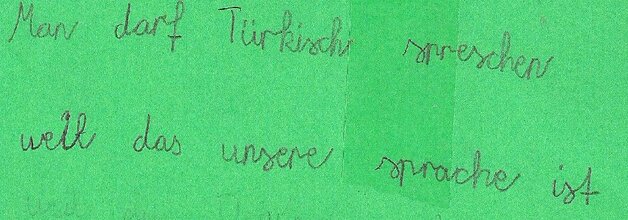 Man darf Türkisch spreschen
weil das unsere sprache ist